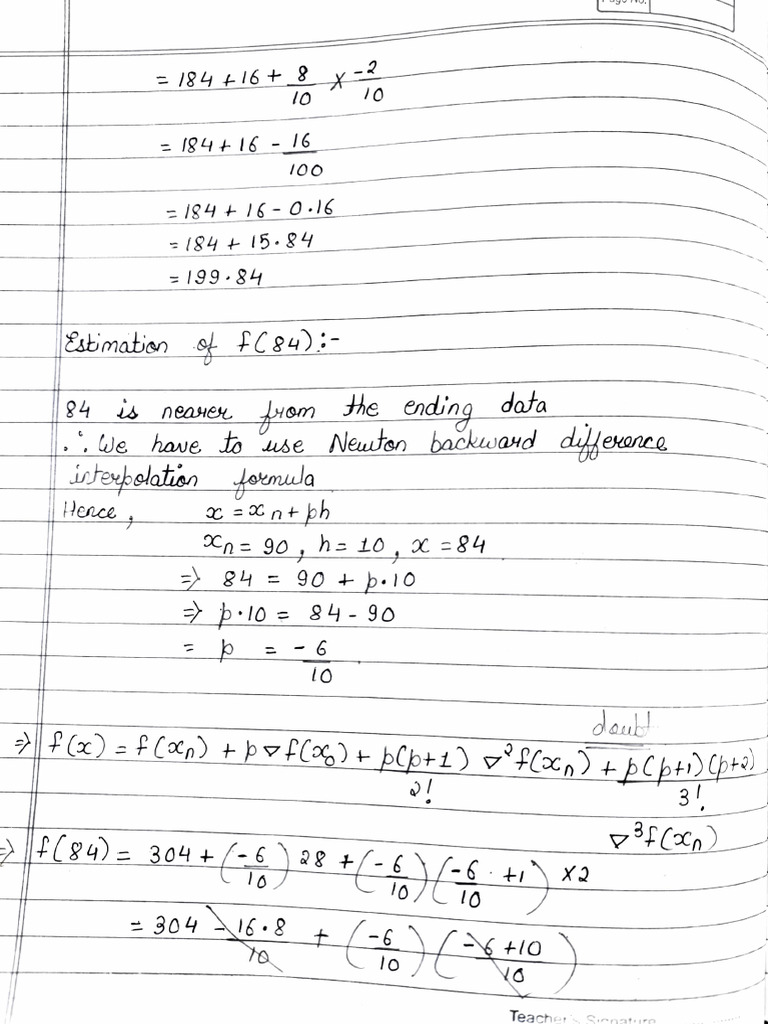 Page No.
= 184 + 16 + 8/10 × -2/10
= 184 + 16 - 16/100
= 184 + 16 - 0.16
= 184 + 15.84
= 199.84
Estimation of f(84):-
84 is nearer from the ending data
∴ We have to use Newton backward difference
interpolation formula
Hence, x = xn + ph
xn = 90, h = 10, x = 84
⇒ 84 = 90 + p.10
⇒ p.10 = 84 - 90
= p = -6/10
doubt
⇒ f(x) = f(xn) + p▽f(x0) + p(p+1)/2! ▽²f(xn) + p(p+1)(p+2)/3!
▽³f(xn)
⇒ f(84) = 304 + (-6/10) 28 + (-6/10)(-6/10 +1) ×2
= 304 - 16.8/10 + (-6/10)(-6+10/10)
Teacher's Signature